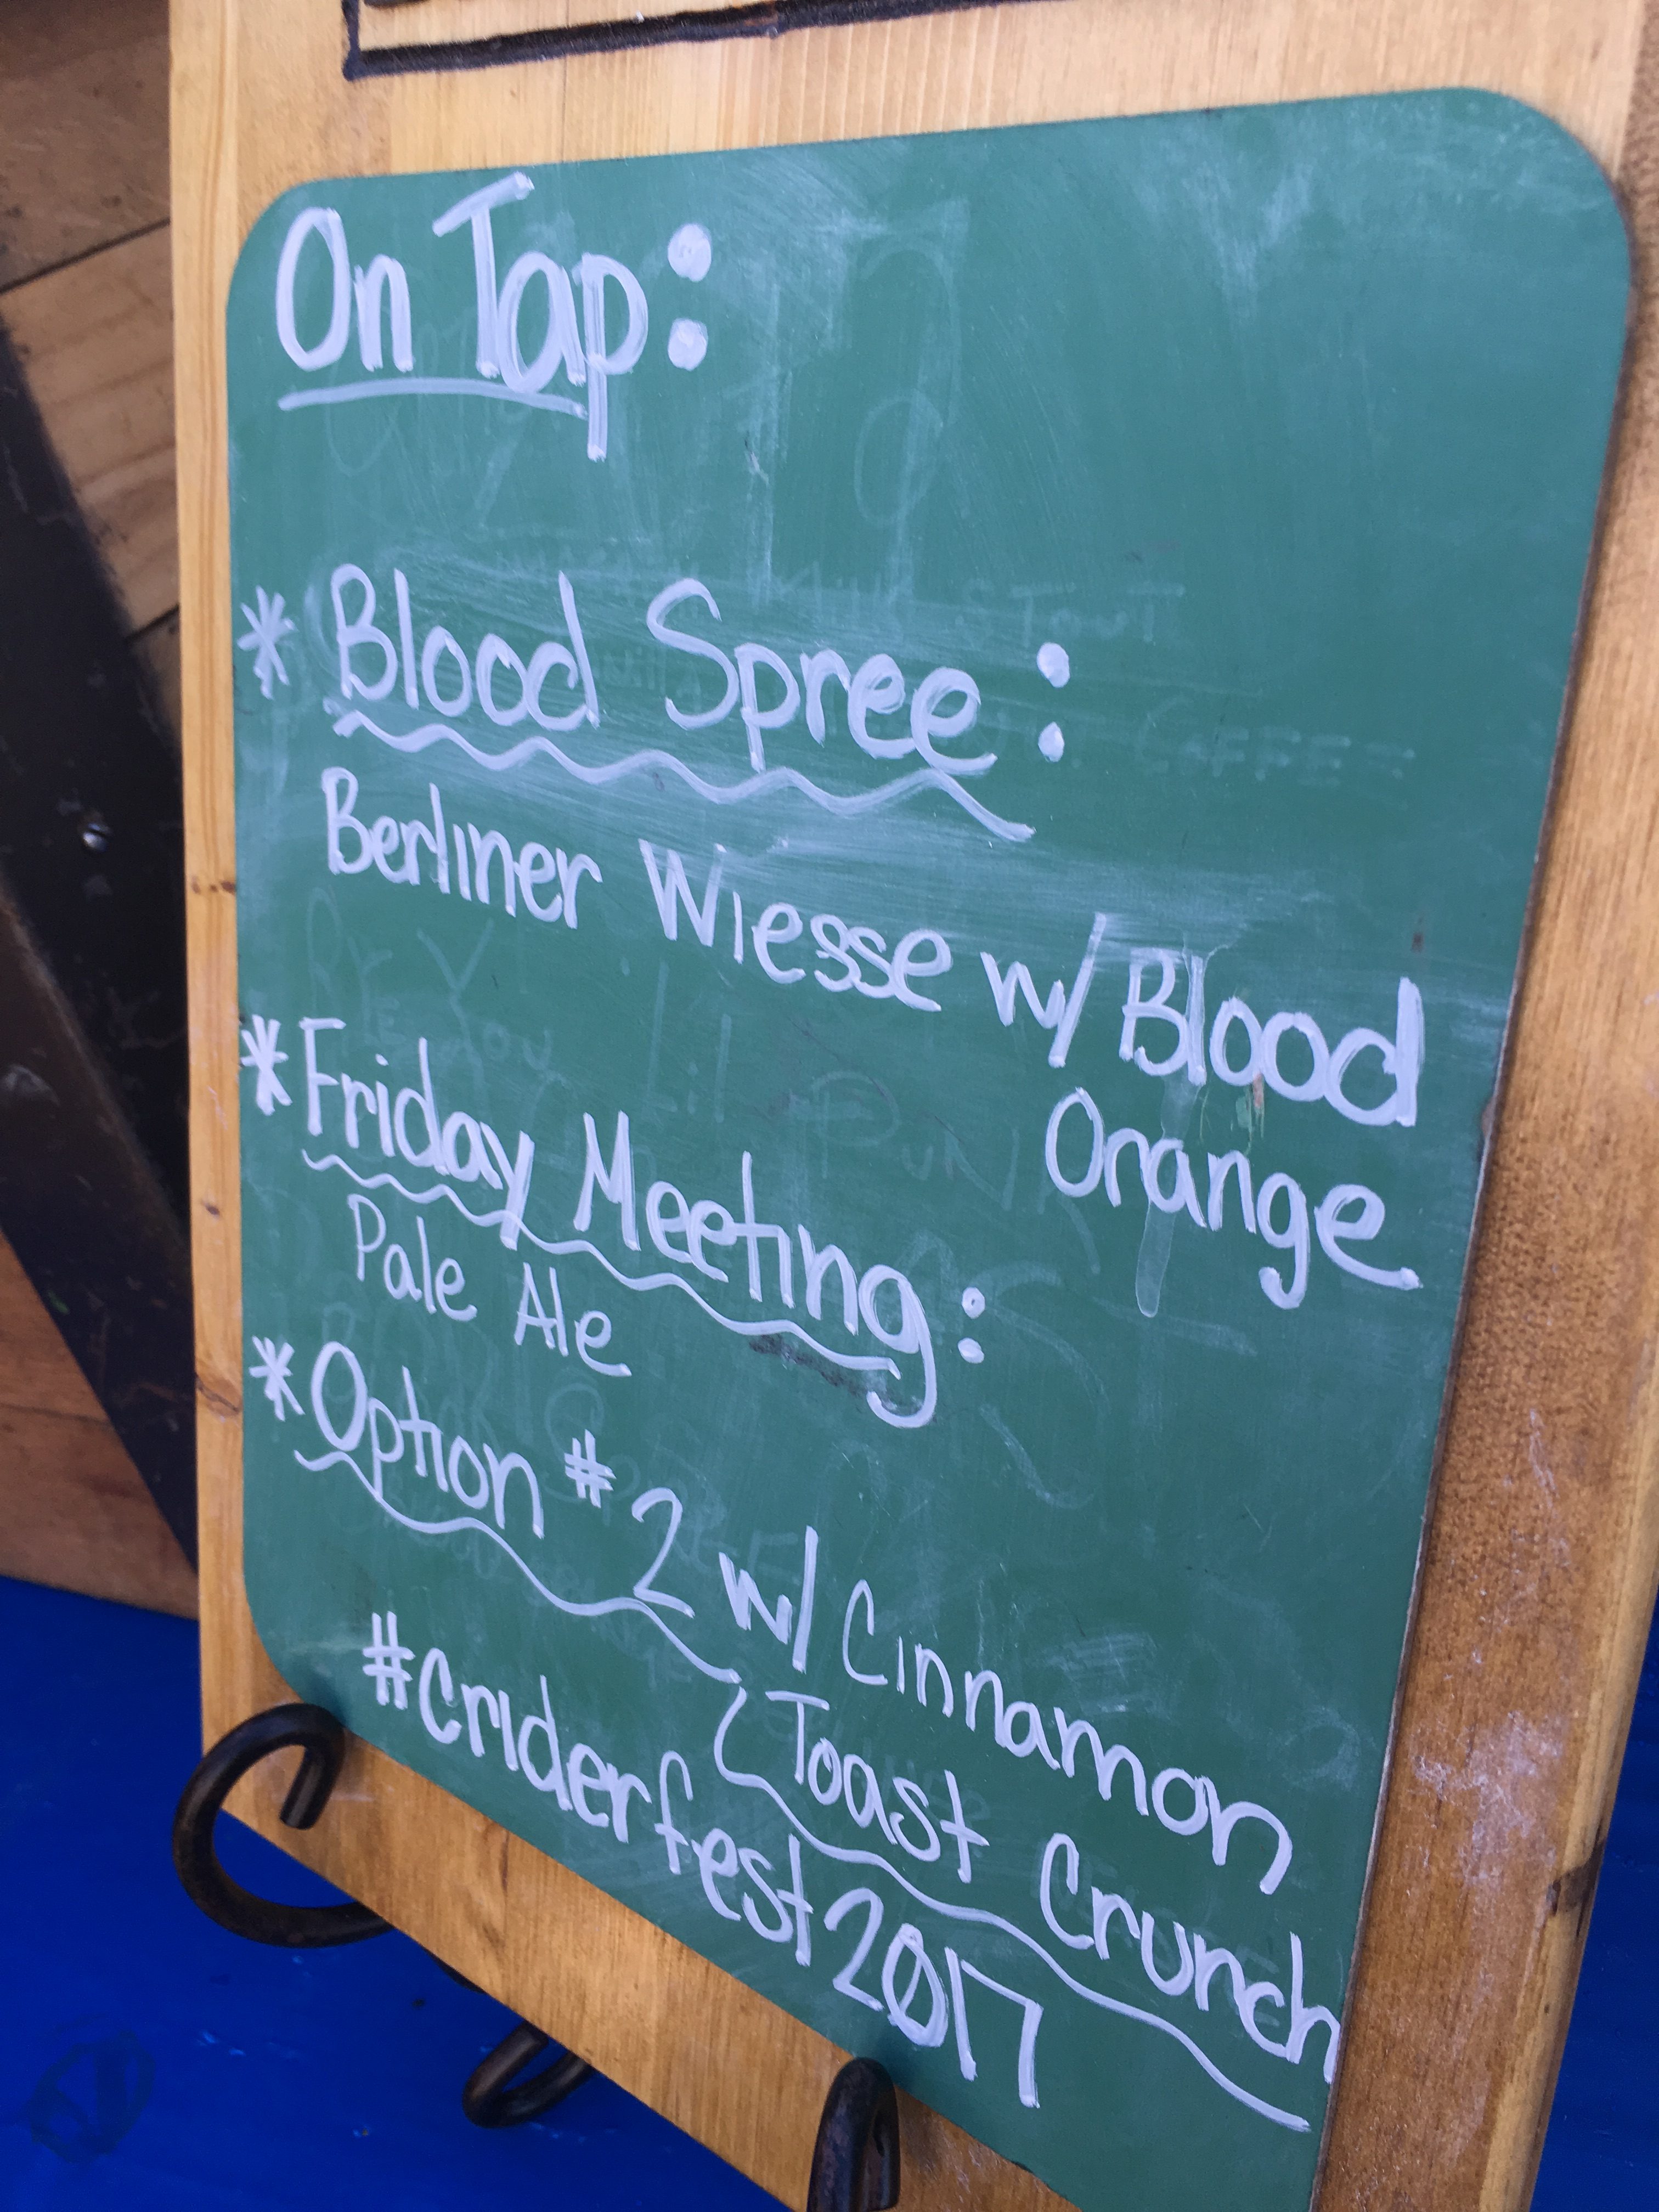 On Tap:
* Blood Spree:
Berliner Wiesse w/ Blood
Orange
* Friday Meeting:
Pale Ale
* Option #2 w/ Cinnamon
Toast Crunch
#criderfest2017